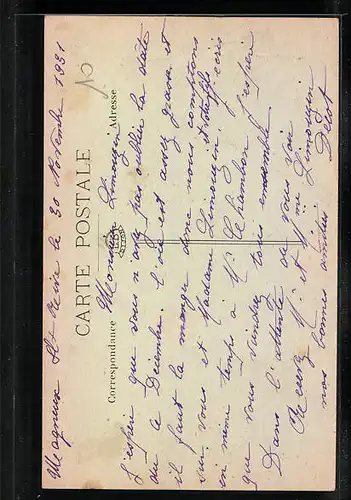 Magneux St Rein le 30 Novembre 1931
CARTE POSTALE
Correspondance
Adresse
Monsieur Limouzin
J'espère que vous n'avez pas oublié la date
du 6 Décembre. L'oie est assez grasse et
il faut la manger donc nous comptons
sur vous et Madame Limouzin.
en même temps à Mr Chambon j'espère
que vous viendrez tous ensemble
Dans l'attente de vous voir
Recevez Mr et Mme Limouzin
nos bonnes amitiés